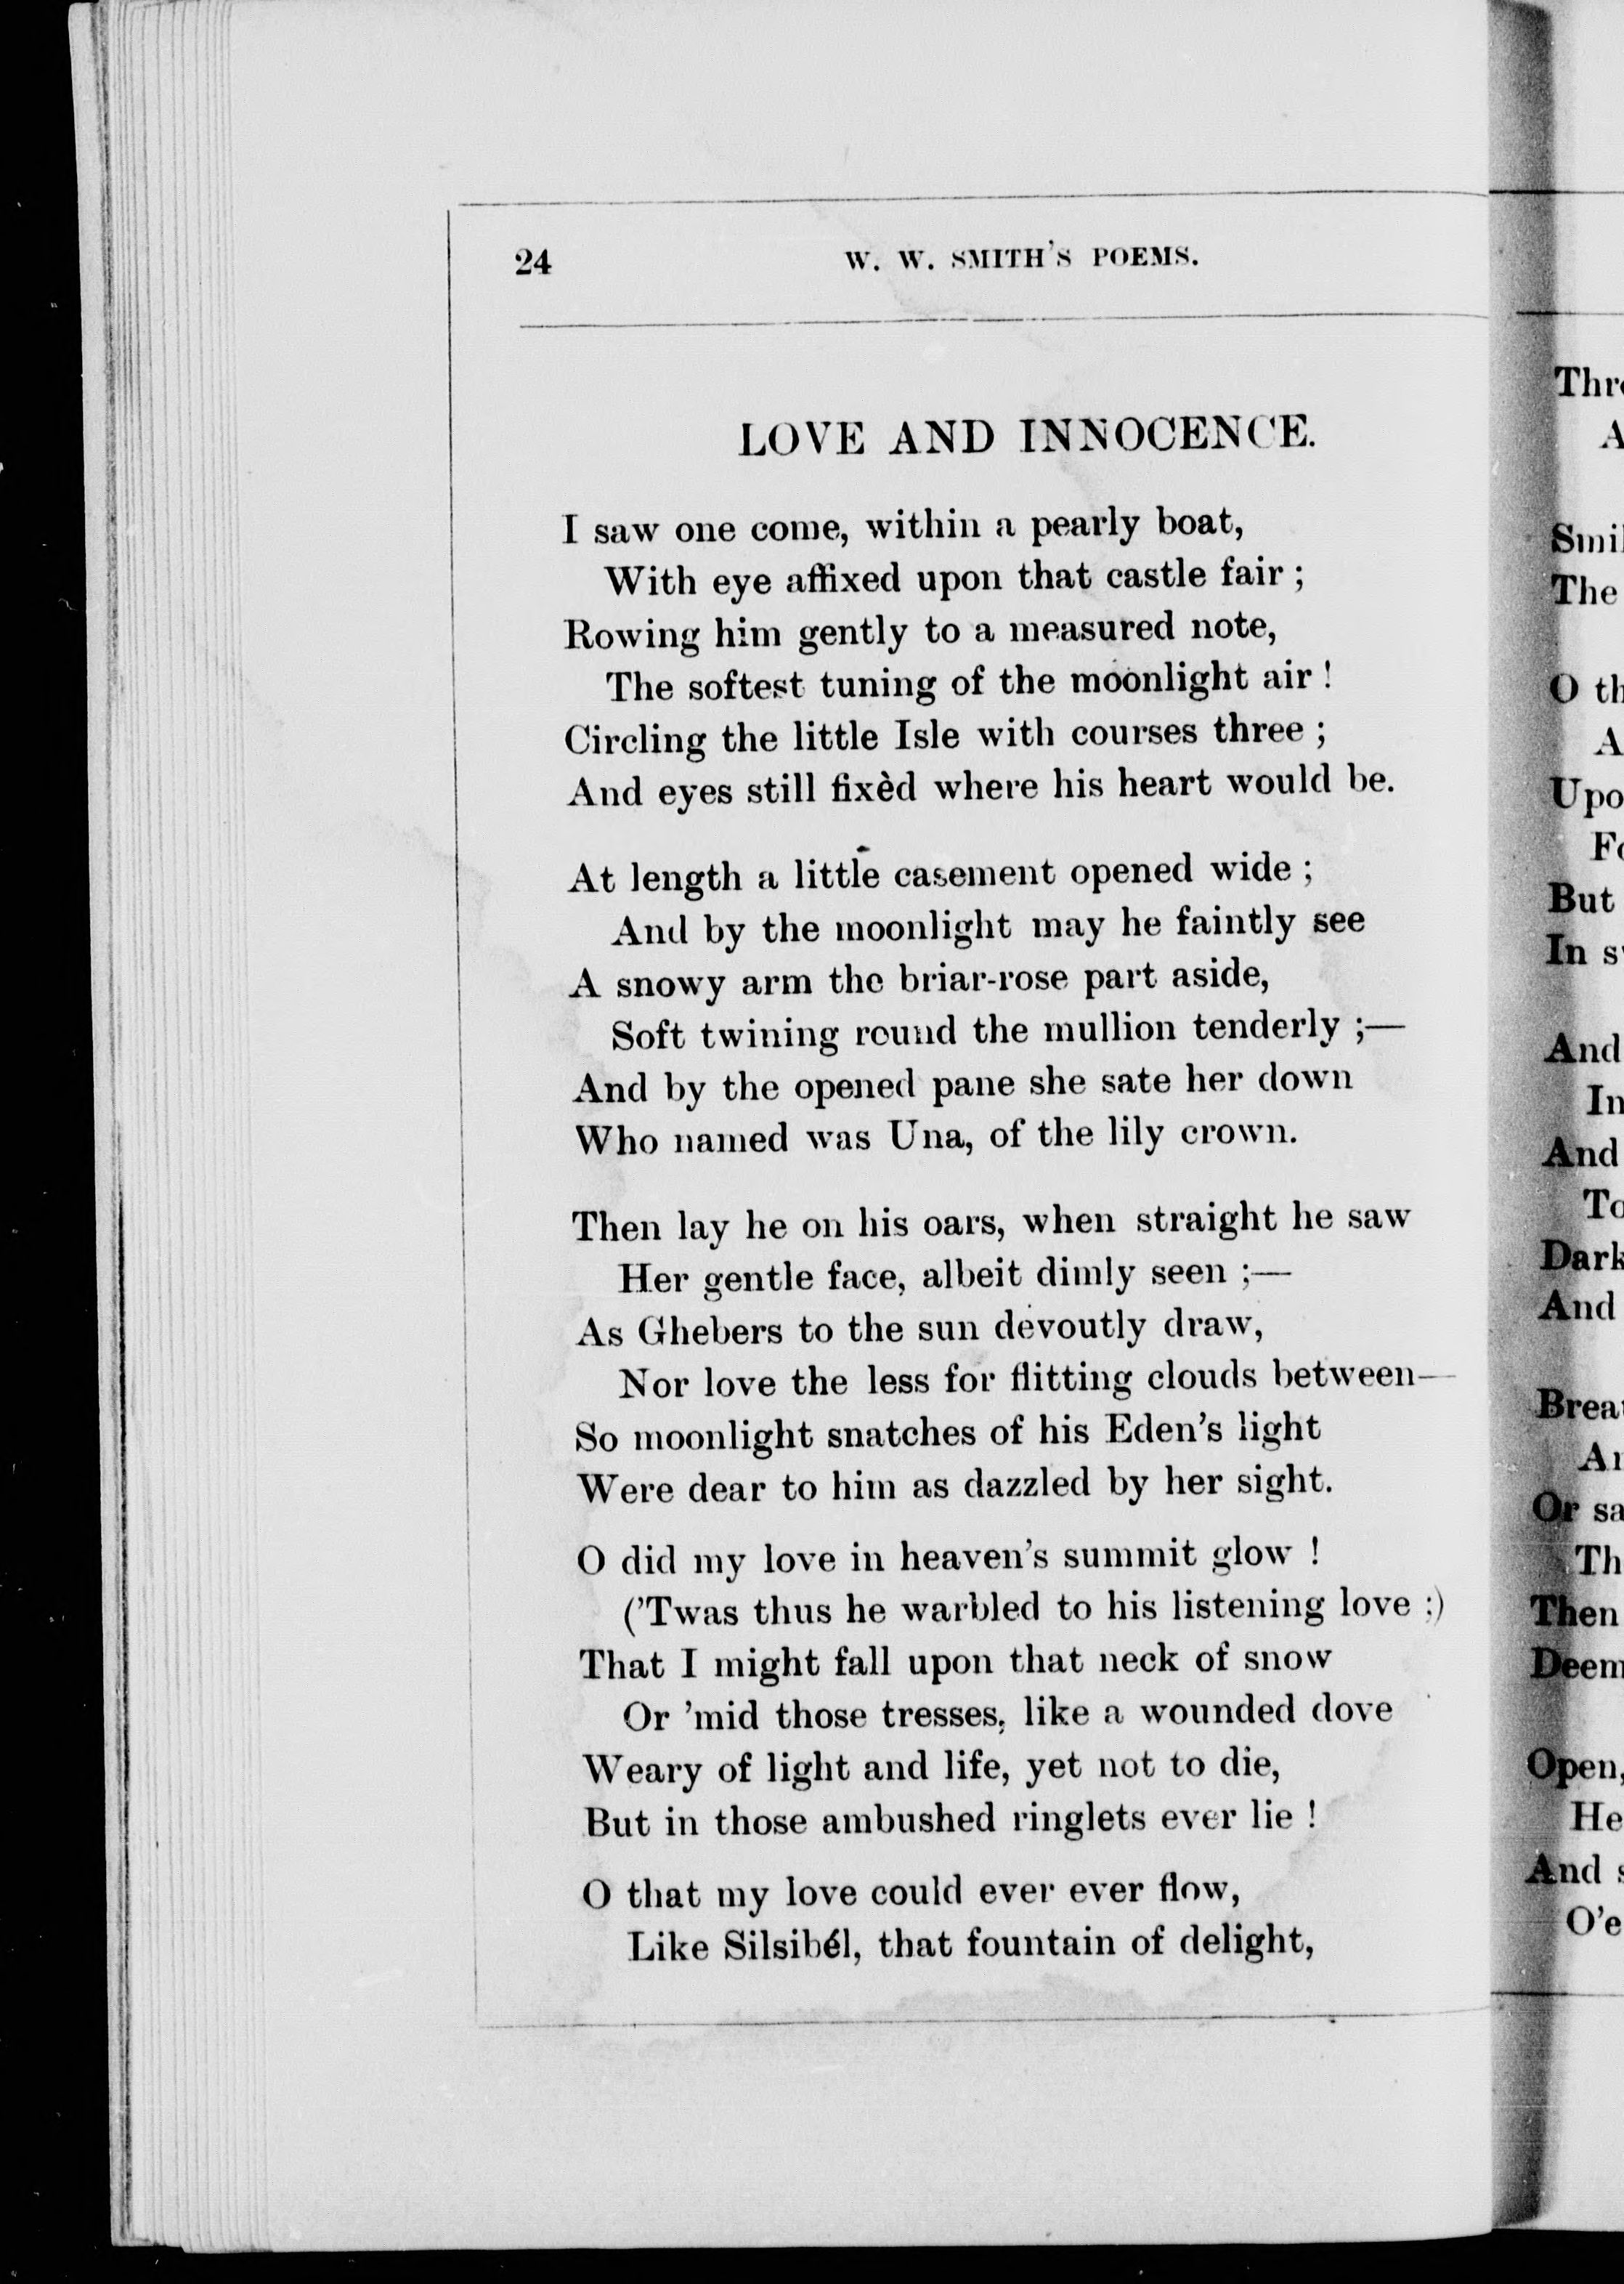 24 W. W. SMITH'S POEMS.
LOVE AND INNOCENCE.
I saw one come, within a pearly boat,
With eye affixed upon that castle fair ;
Rowing him gently to a measured note,
The softest tuning of the moonlight air !
Circling the little Isle with courses three ;
And eyes still fixèd where his heart would be.
At length a little casement opened wide ;
And by the moonlight may he faintly see
A snowy arm the briar-rose part aside,
Soft twining round the mullion tenderly ;—
And by the opened pane she sate her down
Who named was Una, of the lily crown.
Then lay he on his oars, when straight he saw
Her gentle face, albeit dimly seen ;—
As Ghebers to the sun devoutly draw,
Nor love the less for flitting clouds between—
So moonlight snatches of his Eden's light
Were dear to him as dazzled by her sight.
O did my love in heaven's summit glow !
('Twas thus he warbled to his listening love :)
That I might fall upon that neck of snow
Or 'mid those tresses, like a wounded dove
Weary of light and life, yet not to die,
But in those ambushed ringlets ever lie !
O that my love could ever ever flow,
Like Silsibél, that fountain of delight,
The
O
But
In
And
And
And
Then
Open,
And